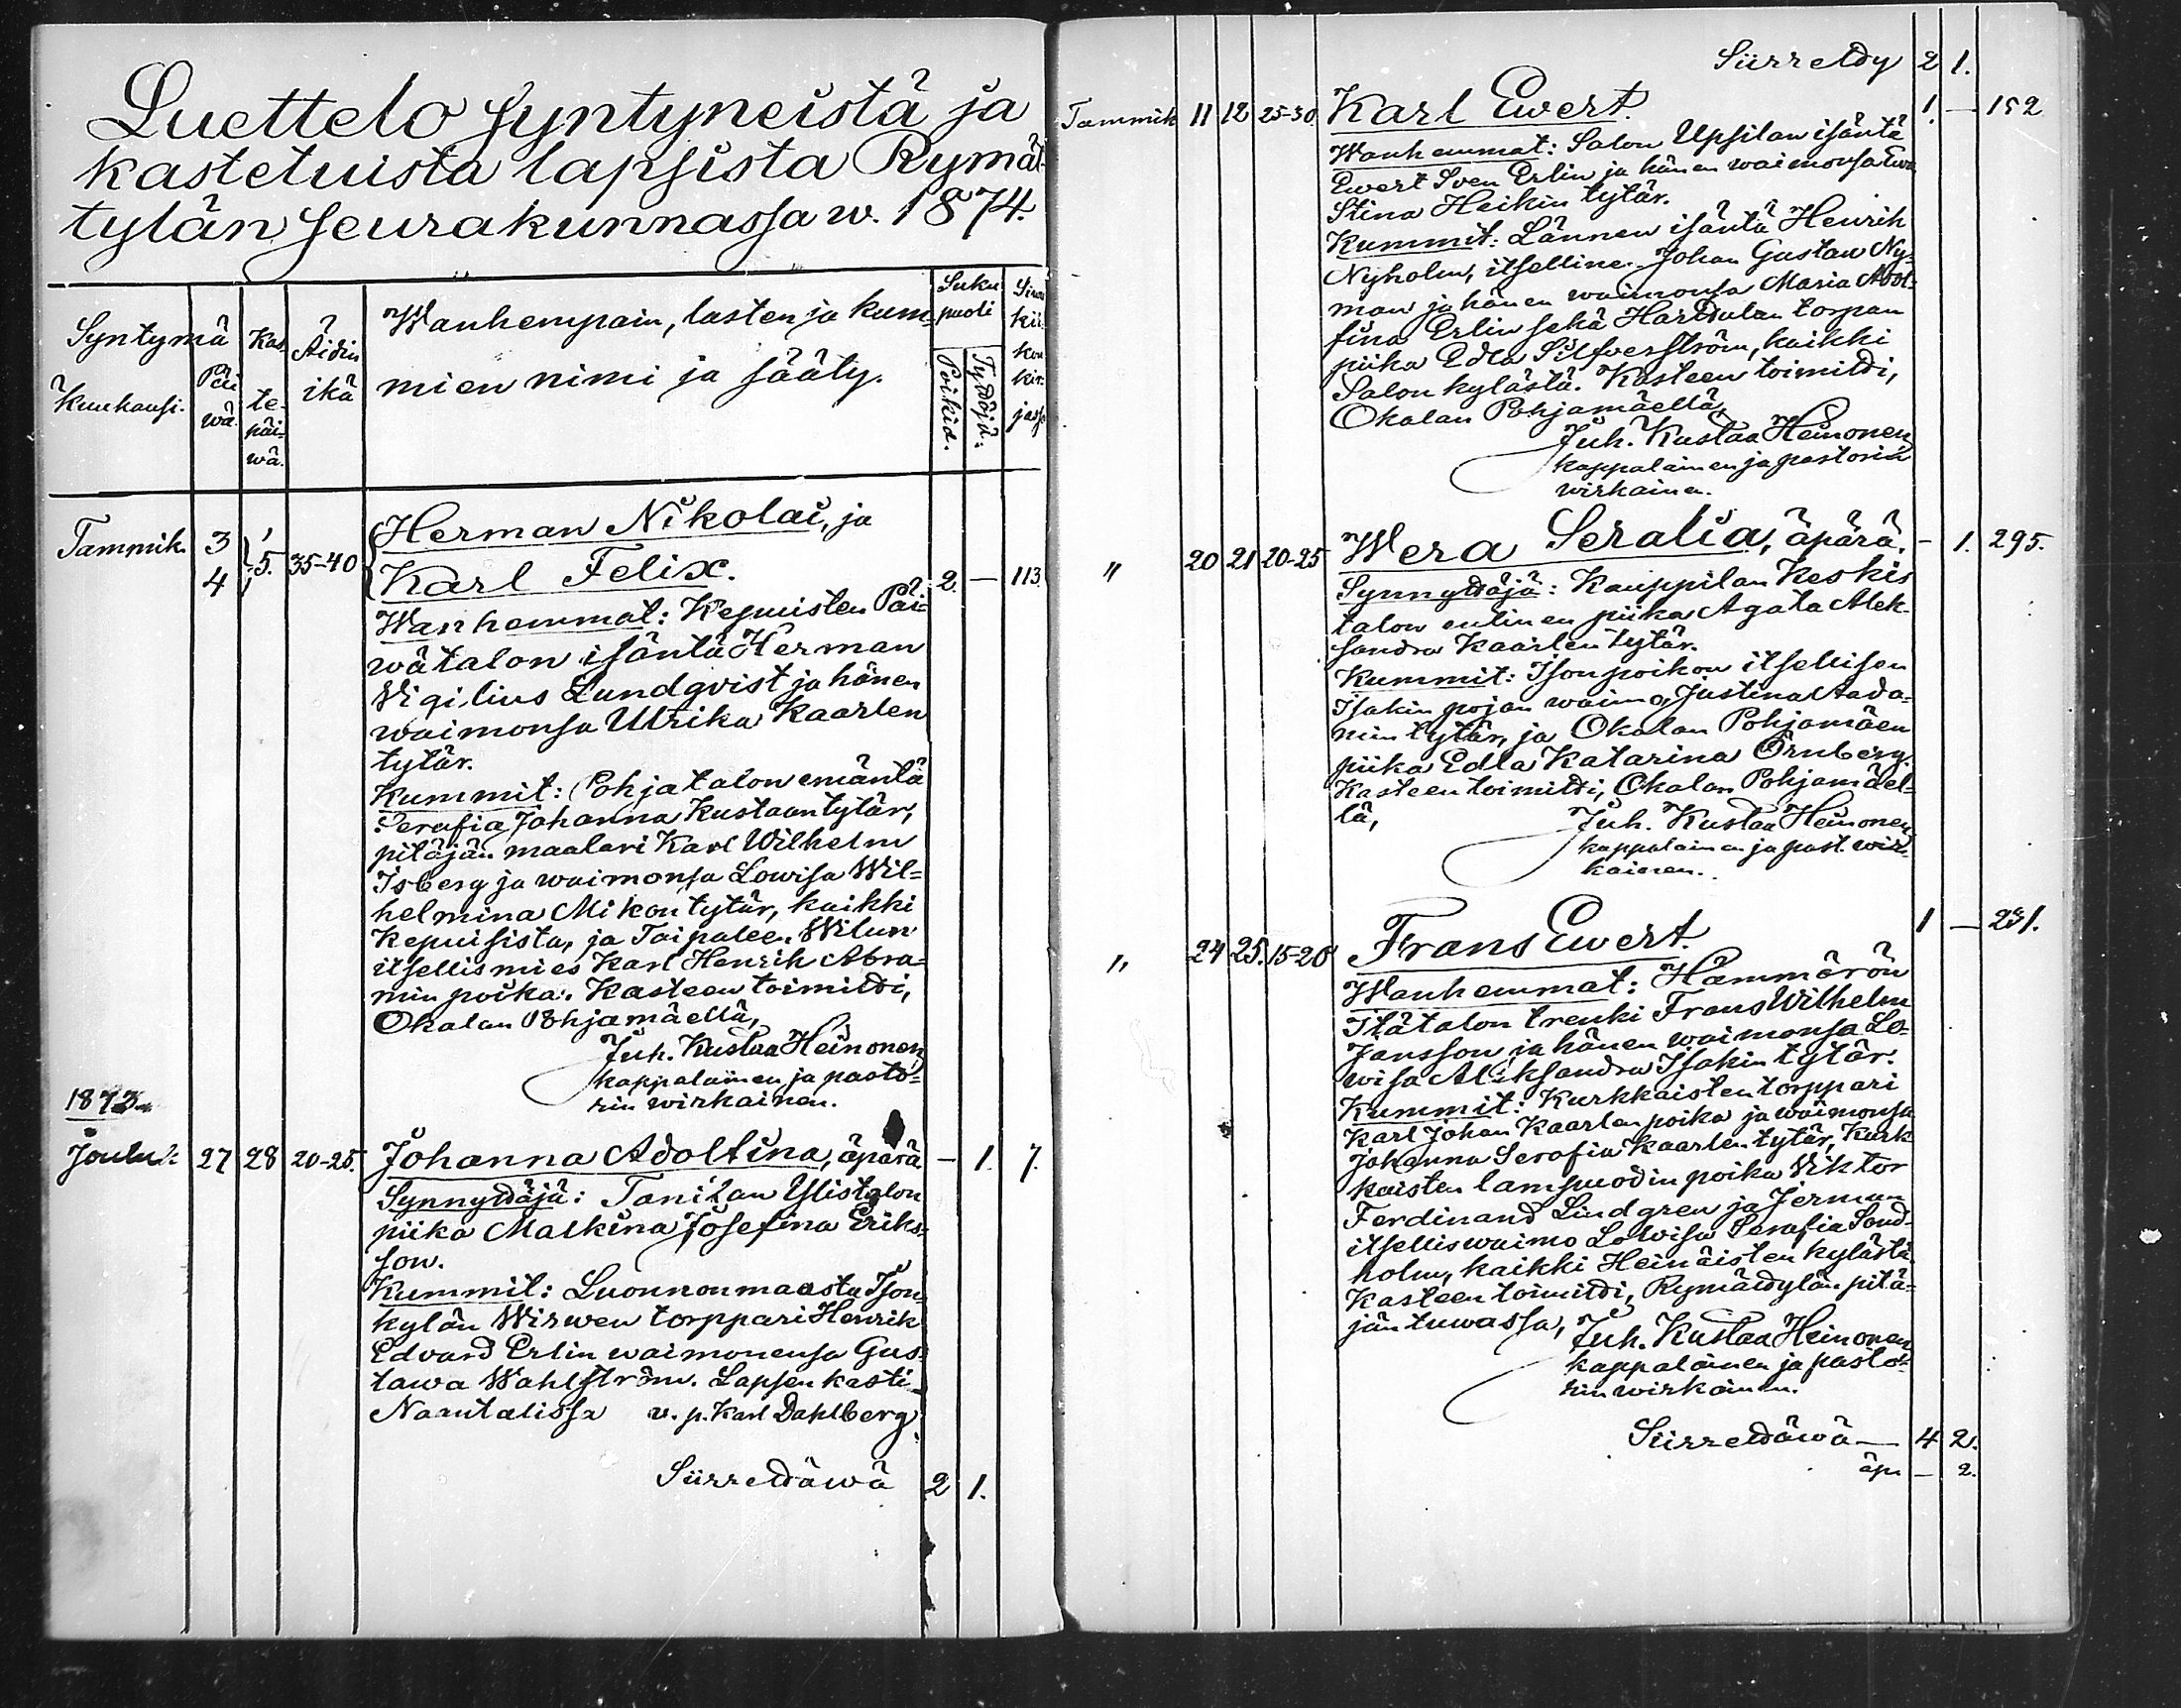 Luettelo syntyneistä ja
kastetuista lapsista Rymät-
tylän seurakunnassa w. 1874.
Syntymä
Kuukausi.
Päi
wä.
Kas-
te-
päi-
wä.
Äidin
ikä
Wanhempain, lasten ja kum-
mien nimi ja sääty.
Suku
puoli
Poikia.
Tyttöjä:
kir-
kon
kir-
Tammik. 3 4 5. 35-40 Herman Nikolai, ja
Karl Felix. 2. — 113.
Wanhemmat: Kepuisten Päi-
wätalon isäntä Herman
Wigilius Lundqvist ja hänen
waimonsa Ulrika Kaarlen
tytär.
Kummit: Pohjatalon emäntä
Serafia Johanna Kustaantytär,
pitäjän maalari Karl Wilhelm
Isberg ja waimonsa Lowisa Wil=
helmina Mikontytär, kaikki
Kepuisista, ja Taipaleen Wilun
itsellismies Karl Henrik Abra=
min poika. Kasteen toimitti,
Okalan Pohjamäellä,
Juh. Kustaa Heinonen
kappalainen ja pasto=
rin wirkainen.
1873
Jouluk. 27 28 20-25. Johanna Adolfina, äpärä — 1. 7.
Synnyttäjä: Tanilan Ylistalon
piika Malkina Josefina Eriks-
son.
Kummit: Luonnonmaasta Ison
kylän Wirwen torppari Henrik
Edvard Erlin waimonensa Gus-
tawa Wahlström. Lapsen kasti
Naantalissa v. p. Karl Dahlberg.
Siirrettäwä 2 1.
Siirretty 2 1.
Tammik 11 12 25-30. Karl Ewert. 1. — 152
Wanhemmat: Salon Upsilan isäntä
Ewert Sven Erlin ja hänen waimonsa Ewa
Stina Heikin tytär.
Kummit: Lännen isäntä Henrik
Nyholm, itselline. Johan Gustaw Ny-
man ja hänen waimonsa Maria Adol-
fina Erlin sekä Harttulan torpan
piika Edla Silfverström, kaikki
Salon kylästä. Kasteen toimitti,
Okalan Pohjamäellä,
Juh. Kustaa Heinonen
kappalainen ja pastorin
wirkainen.
" 20 21 20-25 Wera Seralia, äpärä. — 1. 295.
Synnyttäjä: Kauppilan Keskis
talon entinen piika Agata Alek-
sandra Kaarlen tytär.
Kummit: Isonpoikon itsellisen
Isakin pojan waimo, Justina Aada-
min tytär, ja Okalan Pohjamäen
piika Edla Katarina Örnberg.
Kasteen toimitti, Okalan Pohjamäel-
lä,
Juh. Kustaa Heinonen
kappalainen ja past. wir-
kainen.
" 24 25. 15-20 Frans Ewert. 1 — 231.
Wanhemmat: Hämmärön
Itätalon trenki Frans Wilhelm
Jansson ja hänen waimonsa Lo-
wisa Aleksandra Isakin tytär.
Kummit: Kurkkaisten torppari
Karl Johan Kaarlen poika ja waimonsa
Johanna Serafia Kaarlen tytär, Kurk
kaisten lampuodin poika Wiktor
Ferdinand Lindgren ja Jerman
itselliswaimo Lowisa Serafia Sand-
holm, kaikki Heinäisten kylästä.
Kasteen toimitti, Rymättylän pitä-
jän tuwassa,
Juh. Kustaa Heinonen
kappalainen ja pasto-
rin wirkainen.
Siirrettäwä — 4 2.
äpr — 2.